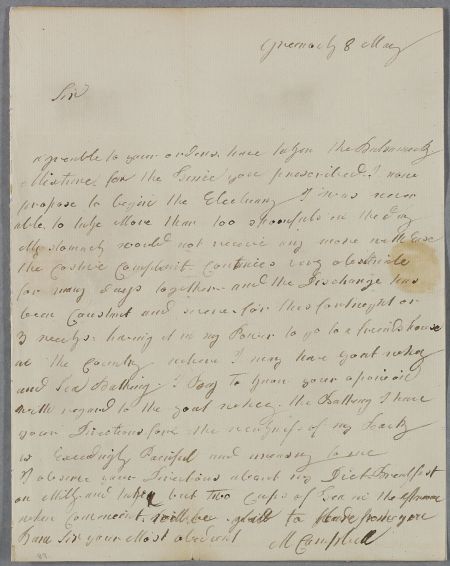 Greenock 8 May
Sir
Agreeable to your orders have taken the Balsamick
Mixture for the time you prescribed. I now
propose to begin the Electuary I was never
able to take More than too spoonfuls in the Day
My stomach would not receive any more with Ease
the Costive Complaint Contnues very obstinate
for many days together and the Discharge has
been Constant and severe for this fortnight or
3 weeks. having it in my Power to go to a friends house
in the Country where I may have Goat whey
and Sea Bathing. I Beg to know your opinion
with regard to the goat whey. the Bathing I have
your Directions for the of my Back
is Exceedingly Painful and uneasy to me
I observe your Directions about my Diet Breakfast
on Milk and take but two Cups of Tea in the afternoon
when Convenient will be glad to hear from you
I am Sir your Most obedient M Campbell